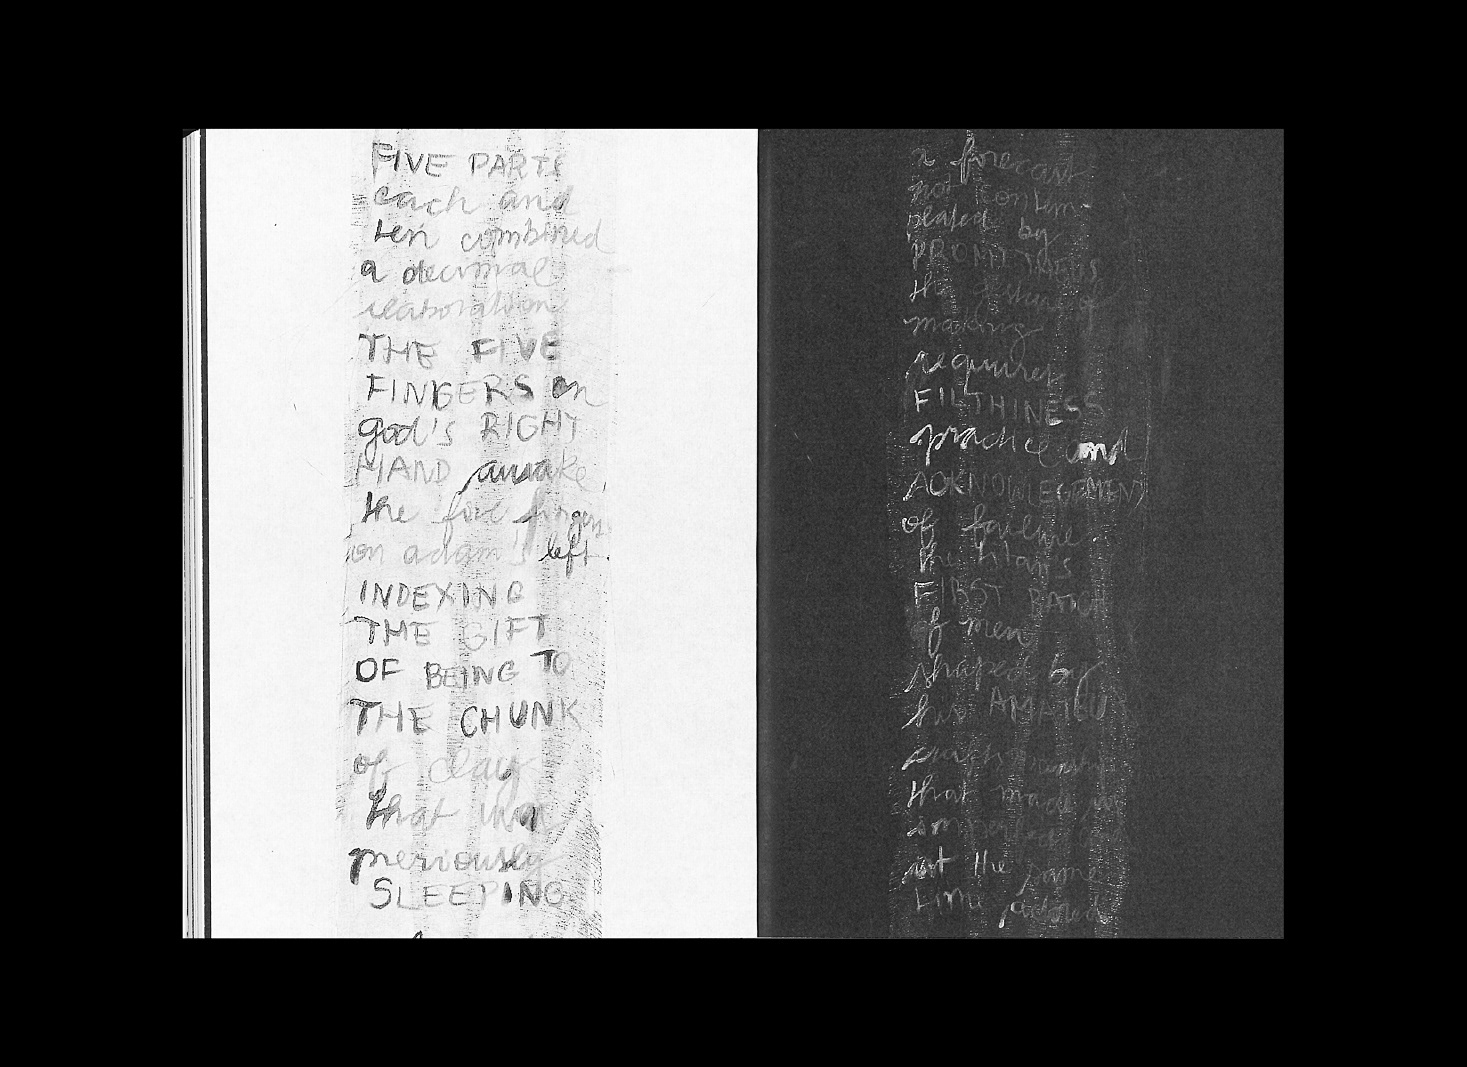 FIVE PARTS
each and
ten combined
a decimal
elaboration
THE FIVE
FINGERS on
god's RIGHT
HAND awake
the five fingers
on adam's left
INDEXING
THE GIFT
OF BEING TO
THE CHUNK
of clay
that was
previously
SLEEPING
a forecast
not contem-
plated by
PROMETHEUS
the gesture of
making
requires
FILTHINESS
practice and
ACKNOWLEGEMENT
of failure
the titan's
FIRST BATCH
of men
shaped by
his AMATEUR
craftsmanship
that made
imperfect
at the same
time